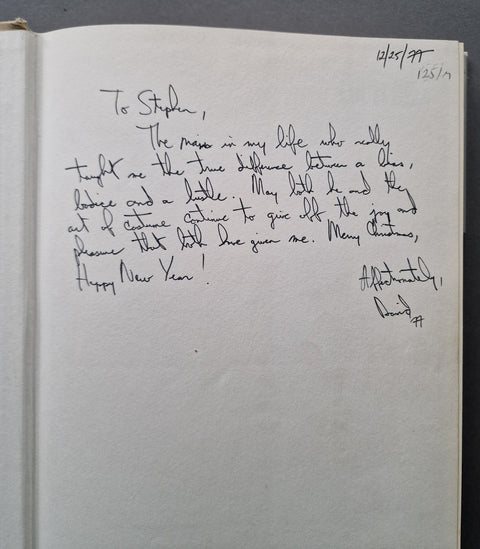 12/25/77
125/n
To Stephen,
The man in my life who really
taught me the true difference between a bias,
bodice and a bustle. May both he and the
art of costume continue to give off the joy and
pleasure that both have given me. Merry Christmas,
Happy New Year!
Affectionately,
David
77